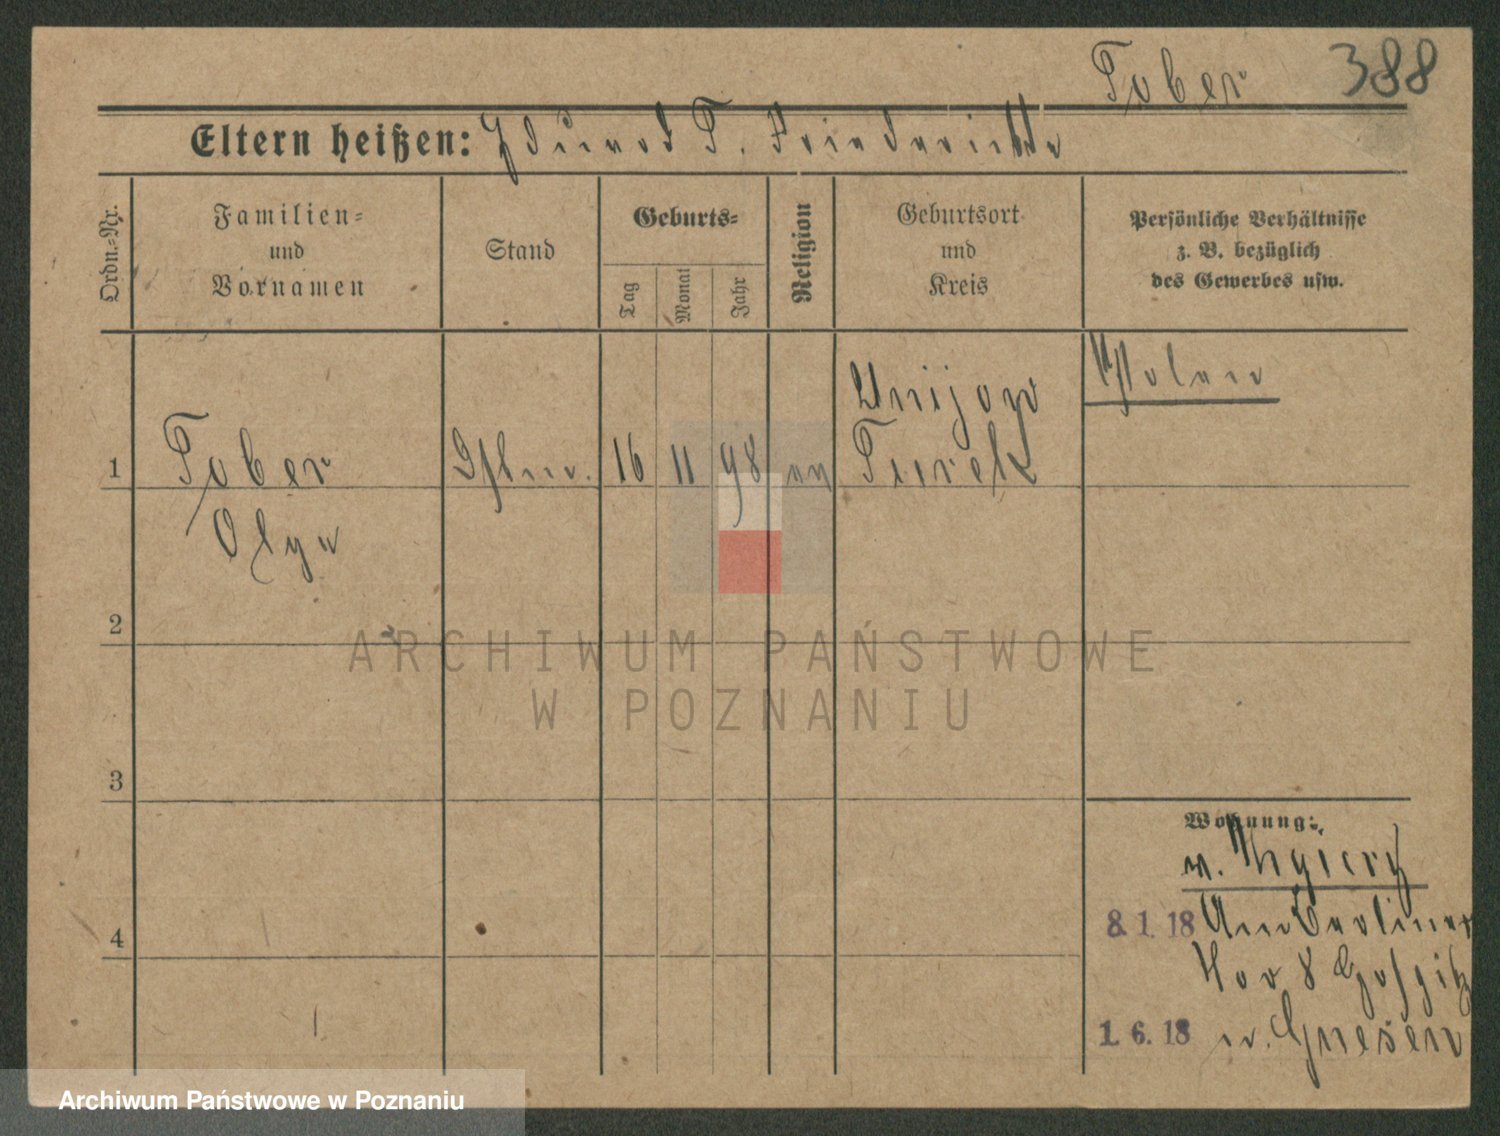 Tober 388
Eltern heißen: Eduard T. Friederike
Ordn.-Nr.
Familien-
und
Vornamen
Stand
Geburts-
Tag
Monat
Jahr
Religion
Geburtsort
und
Kreis
Persönliche Verhältnisse
z. B. bezüglich
des Gewerbes usw.
Polen
Unijow
1 Tober 16 11 98 ev Turek
Olga
2
3
4
Wohnung:
v. Zgierz
8. 1. 18 Am Berliner
Tor 8
1. 6. 18 n. Gnesen
ARCHIWUM PAŃSTWOWE
W POZNANIU
Archiwum Państwowe w Poznaniu